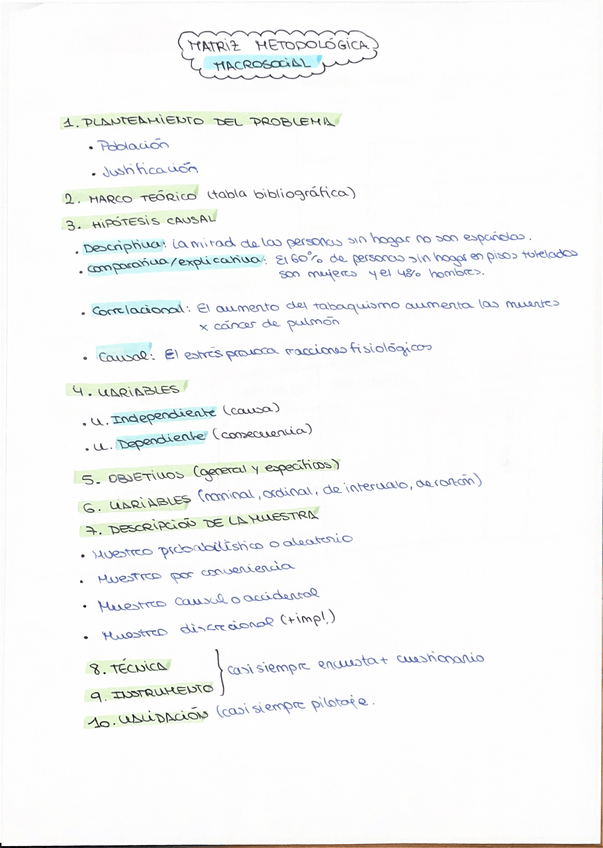 MATRIZ METODOLÓGICA
MACROSOCIAL
1. PLANTEAMIENTO DEL PROBLEMA
• Población
• Justificación
2. MARCO TEÓRICO (tabla bibliográfica)
3. HIPÓTESIS CAUSAL
• Descriptiva: La mitad de las personas sin hogar no son españolas.
• comparativa/explicativa: El 60% de personas sin hogar en pisos tutelados
son mujeres y el 48% hombres.
• Correlacional: El aumento del tabaquismo aumenta las muertes
x cáncer de pulmón
• Causal: El estrés provoca reacciones fisiológicos
4. VARIABLES
• V. Independiente (causa)
• V. Dependiente (consecuencia)
5. OBJETIVOS (general y específicos)
6. VARIABLES (nominal, ordinal, de intervalo, de razón)
7. DESCRIPCIÓN DE LA MUESTRA
• Muestreo probabilístico o aleatorio
• Muestreo por conveniencia
• Muestreo casual o accidental
• Muestreo discrecional (+impl.)
8. TÉCNICA
casi siempre encuesta + cuestionario
9. INSTRUMENTO
10. VALIDACIÓN (casi siempre pilotaje.